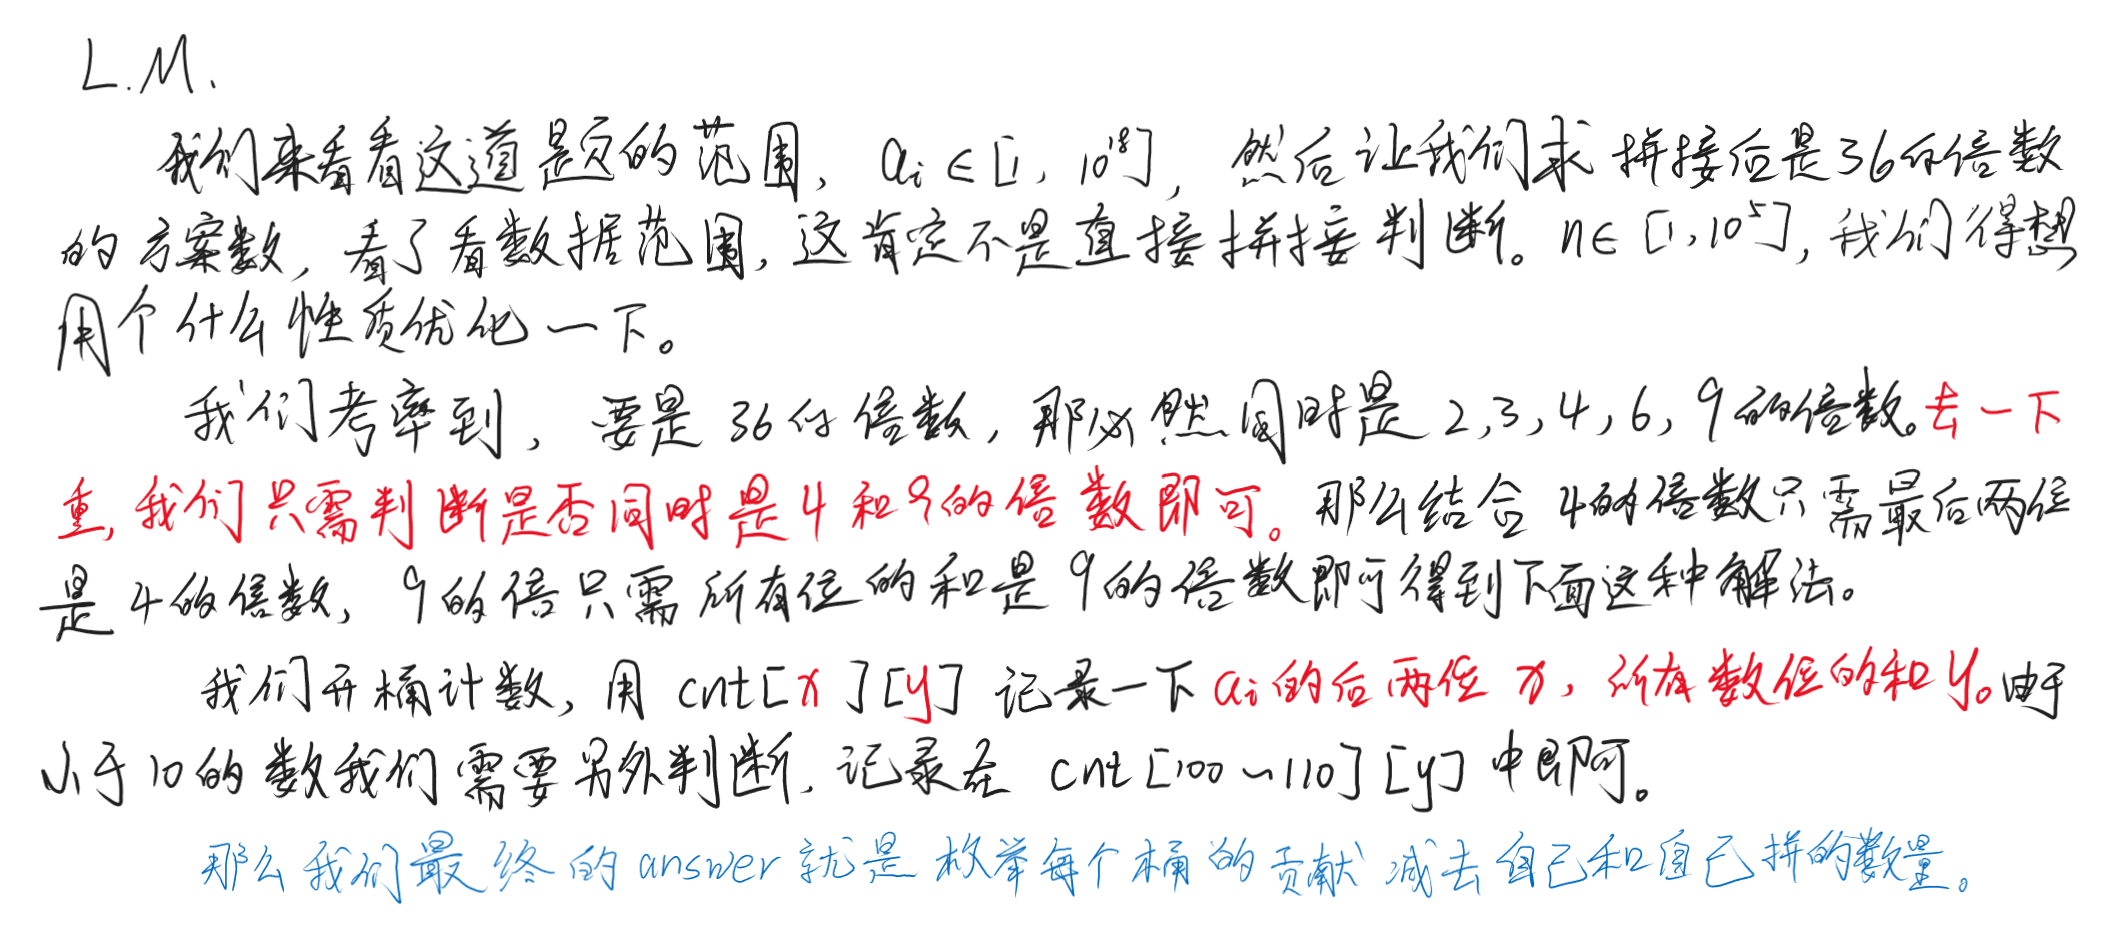 L.M.
我们来看看这道题的范围, ai∈[1, 10^18], 然后让我们求 拼接后是36的倍数
的方案数, 看了看数据范围, 这肯定不是直接拼接判断。n∈[1,10^5], 我们得想
用个什么性质优化一下。
我们考率到, 要是36的倍数, 那必然同时是2,3,4,6,9的倍数。去一下
重, 我们只需判断是否同时是4和9的倍数即可。那么结合4的倍数只需最后两位
是4的倍数, 9的倍只需所有位的和是9的倍数即可得到下面这种解法。
我们开桶计数, 用 cnt[x][y] 记录一下ai的后两位x, 所有数位的和y。由于
小于10的数我们需要另外判断, 记录在 cnt[100~110][y] 中即可。
那么我们最终的answer就是枚举每个桶的贡献减去自己和自己拼的数量。